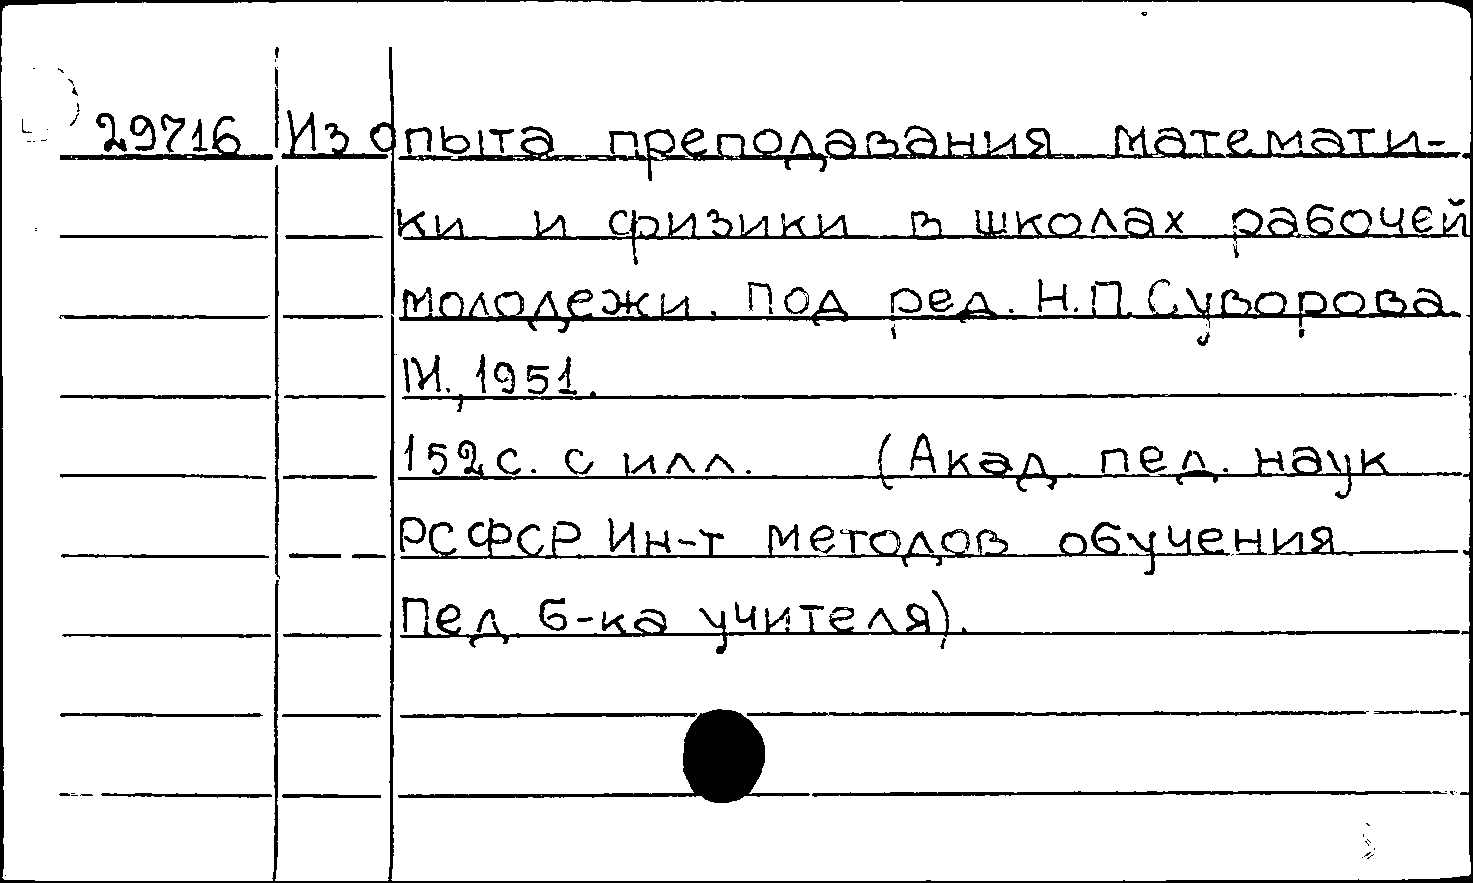 29716 Из опыта преподавания математи-
ки и физики в школах рабочей
молодежи. Под ред. Н.П. Суворова.
М., 1951.
152 с. с илл. (Акад. пед. наук
РСФСР Ин-т методов обучения
Пед б-ка учителя).